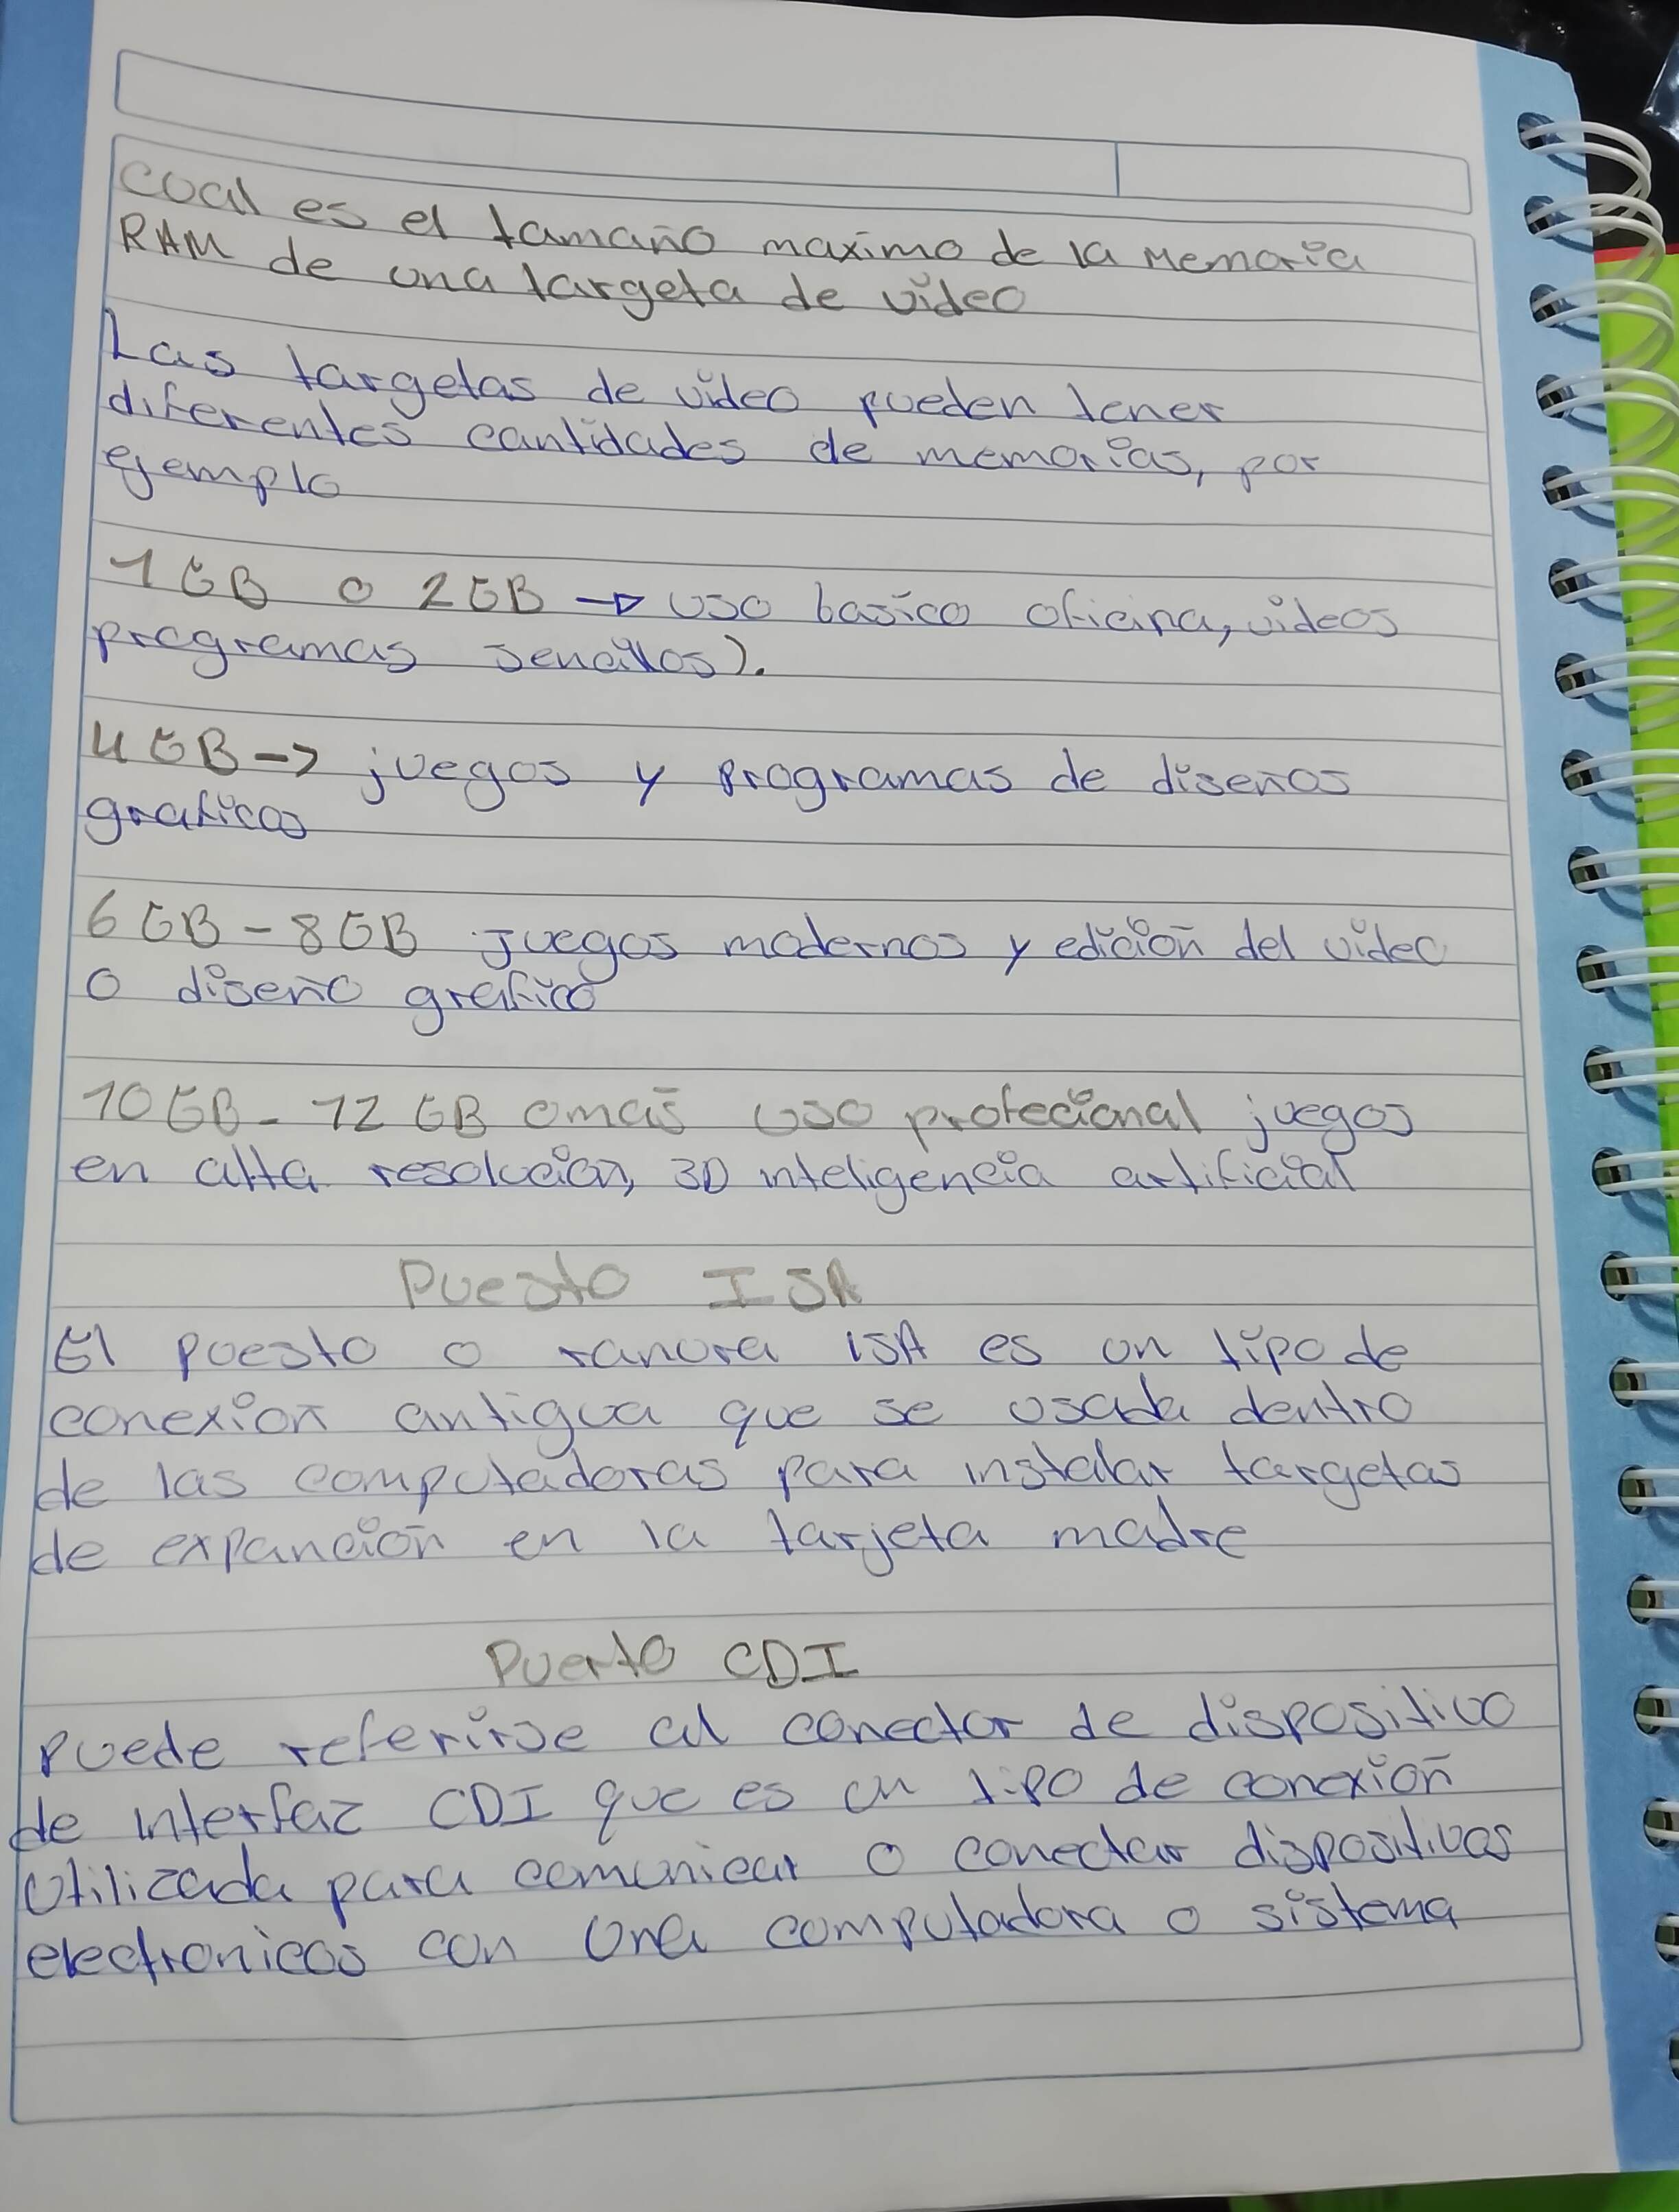 cual es el tamaño maximo de la Memoria
RAM de una targeta de video
Las targetas de video pueden tener
diferentes cantidades de memorias, por
ejemplo
1 GB o 2 GB → uso basico oficina, videos
programas sencillos).
4 GB -> juegos y programas de diseños
graficos
6 GB - 8 GB juegos modernos y edición del video
o diseño grafico
10 GB - 12 GB o más uso profecional juegos
en alta resolución, 3D inteligencia artificial
Puesto ISA
El puesto o ranura ISA es un tipo de
conexión antigua que se usada dentro
de las computadoras para instalar targetas
de expanción en la tarjeta madre
Puerto CDI
Puede referirse al conector de dispositivo
de interfaz CDI que es un tipo de conexión
utilizada para comunicar o conectar dispositivos
electronicos con una computadora o sistema